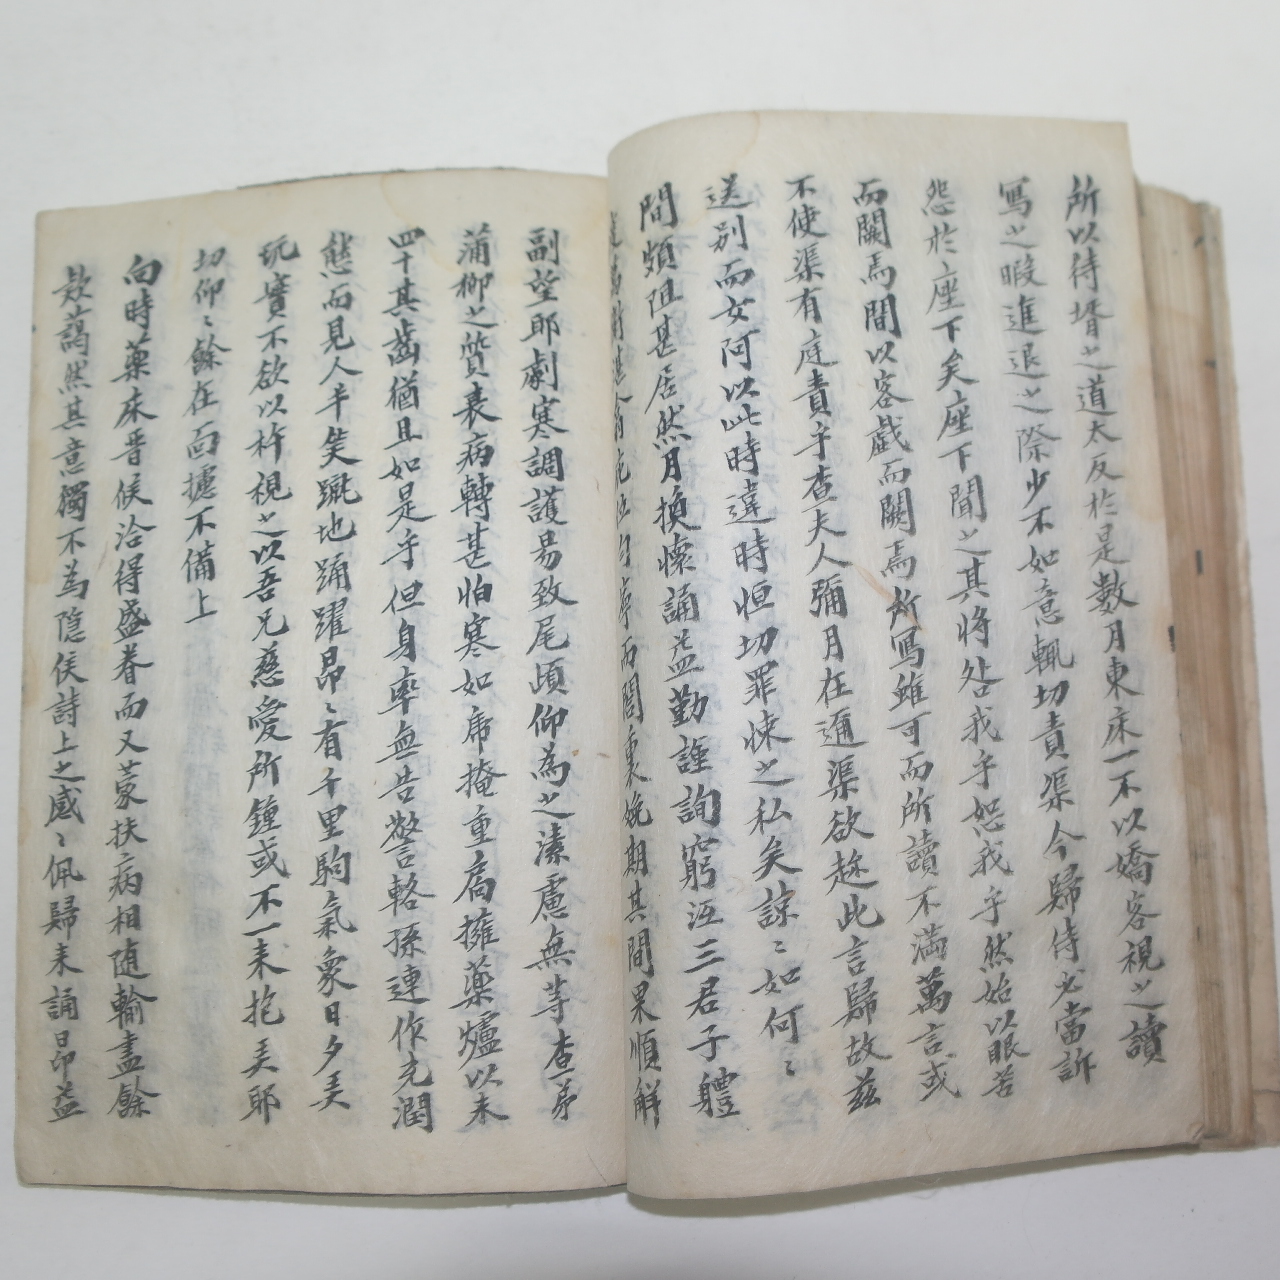 所以待壻之道太反於是數月東床一不以嬌客視之讀
寫之暇進退之際少不如意輒切責渠今歸侍必當訴
怨於座下矣座下聞之其將咎我乎恕我乎然始以眼苦
而闕焉間以客戱而闕焉所寫雖可而所讀不滿萬言或
不使渠有庭責乎查夫人彌月在邇渠欲趂此言歸故玆
送別而女阿以此時違時恒切罪悚之私矣諒〻如何〻
間頗阻甚居然月換悵誦益勤謹詢窮沍三君子軆
而閤束娩期其間果順解
副望耶劇寒調護易致尾頉仰為之溱慮無等查弟
蒲柳之質衰病轉甚怕寒如席掩重扃擁藥爐以未
四十其齒猶且如是乎但身率無告警輅孫連作充潤
態而見人辛笑躐地踊躍昂〻有千里駒氣象日夕美
玩實不欲以杵視之以吾兄慈愛所鍾或不一来抱美耶
切仰〻餘在面攄不備上
向時藥床晋候洽得盛眷而又蒙扶病相随輸盡餘
欵藹然其意獨不為隐侯詩上之感〻佩歸来誦昂益